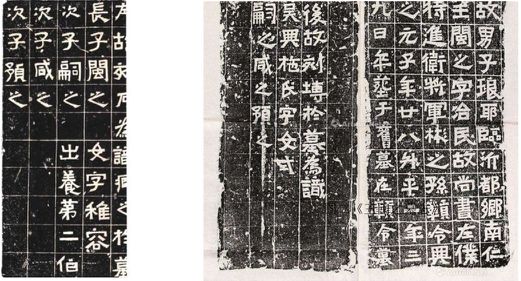 故男子琅耶臨沂都鄉南仁
王閩之字治民故尚書左僕
特進衛將軍彬之孫贛令興
之元子年廿八升平二年三
九日卒葬于舊墓在贛令墓
後故刻塼於墓為識
吳興施氏字女式
嗣之咸之預之
故刻石為識臧之於墓
長子閩之 女字稚容
次子嗣之 出養第二伯
次子咸之
次子預之